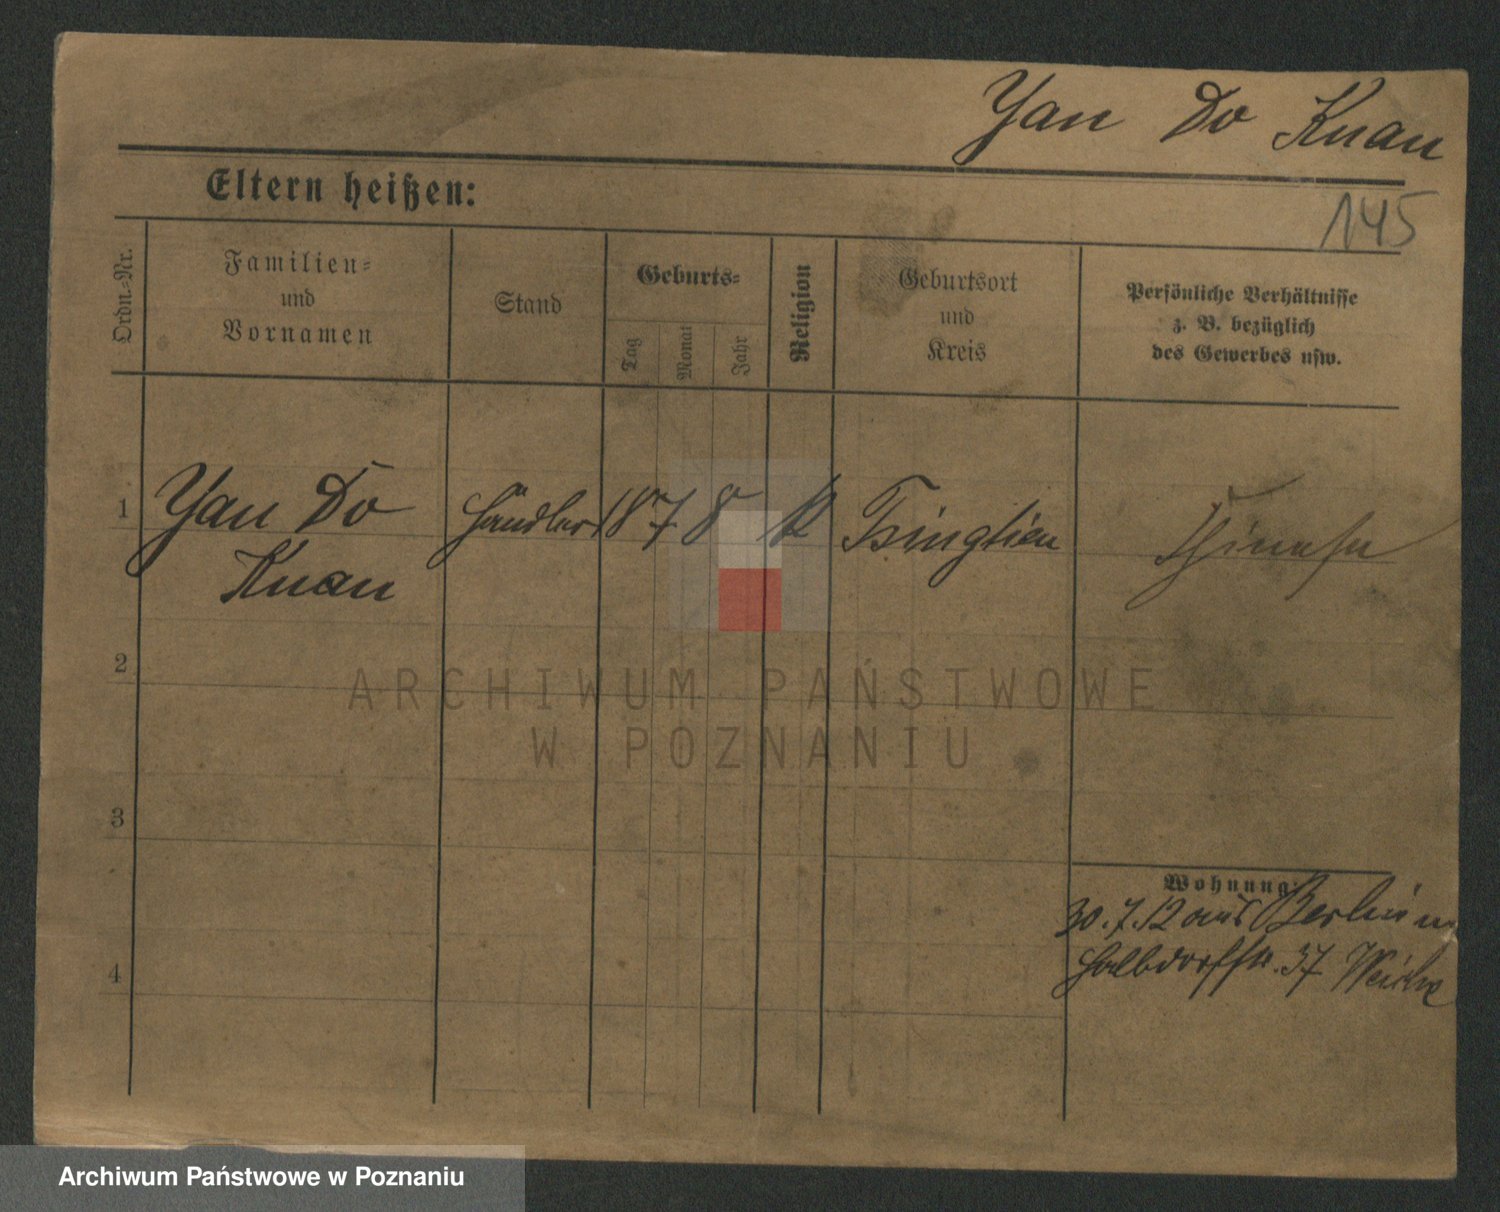 Yan Do Knan
Eltern heißen:
145
Ordn.-Nr.
Familien-
und
Vornamen
Stand
Geburts-
Tag
Monat
Jahr
Religion
Geburtsort
und
Kreis
Persönliche Verhältnisse
z. B. bezüglich
des Gewerbes usw.
1
Yan Do
Knan
Händler
1878
k
Tsingtien
2
3
4
Wohnung:
30.7.12 aus Berlin
Halbdorfstr. 37
ARCHIWUM PAŃSTWOWE
W POZNANIU
Archiwum Państwowe w Poznaniu